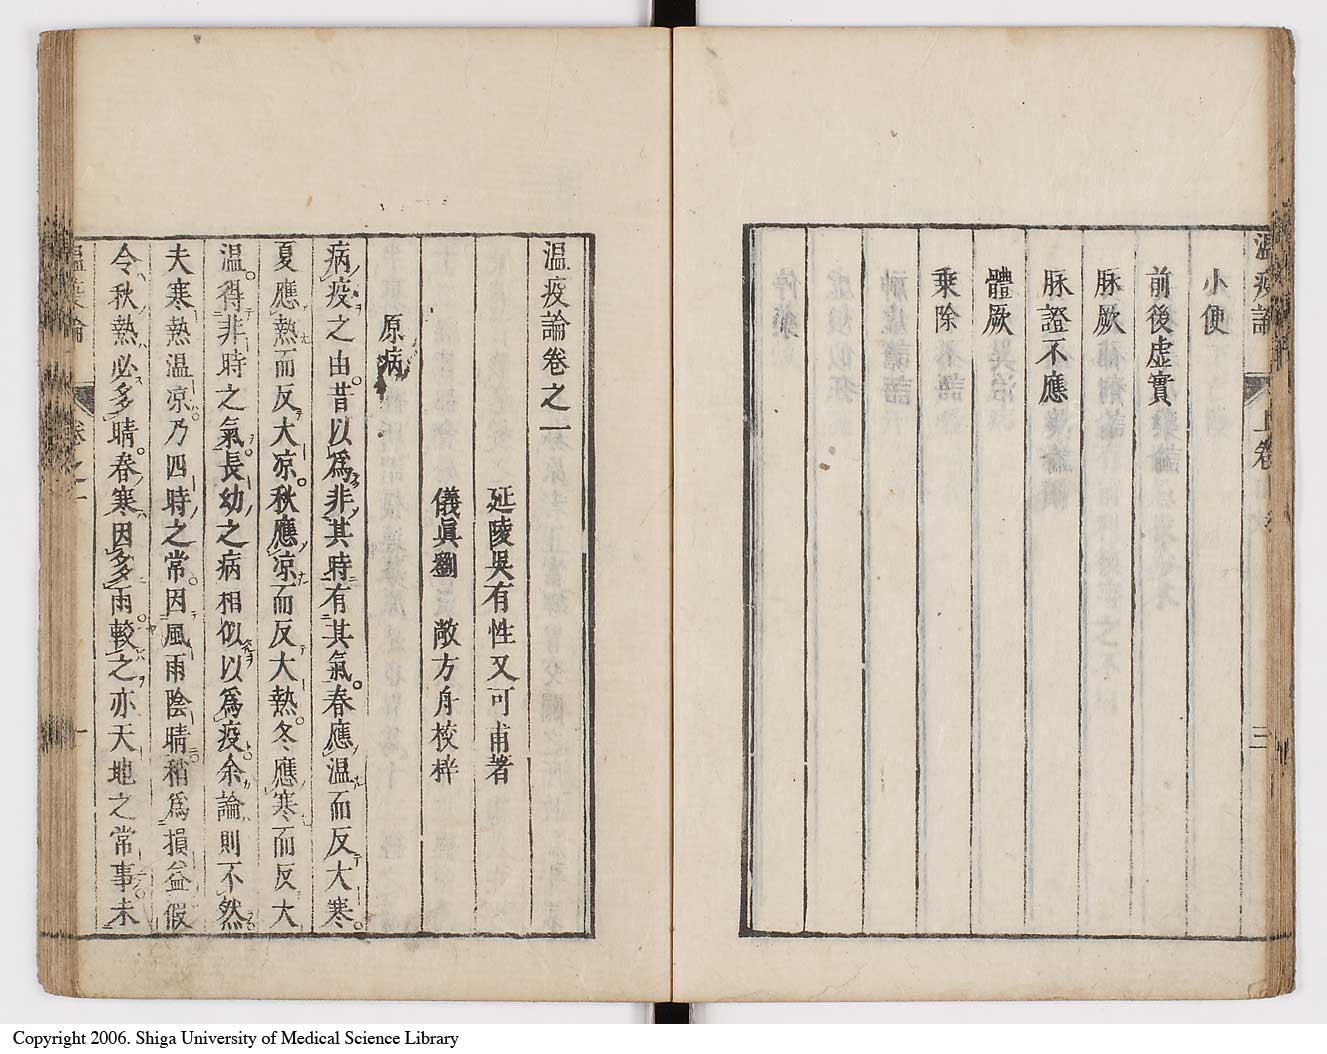 小便
前後虛實
脉厥
脉證不應
體厥
乘除
温疫論卷之一
延陵吳有性又可甫著
儀眞劉敞方舟校梓
原病
病疫之由昔以爲非其時有其氣春應温而反大寒
夏應熱而反大凉秋應凉而反大熱冬應寒而反大
温得非時之氣長幼之病相似以爲疫余論則不然
夫寒熱温凉乃四時之常因風雨陰晴稍爲損益假
令秋熱必多晴春寒因多雨較之亦天地之常事未
Copyright 2006. Shiga University of Medical Science Library